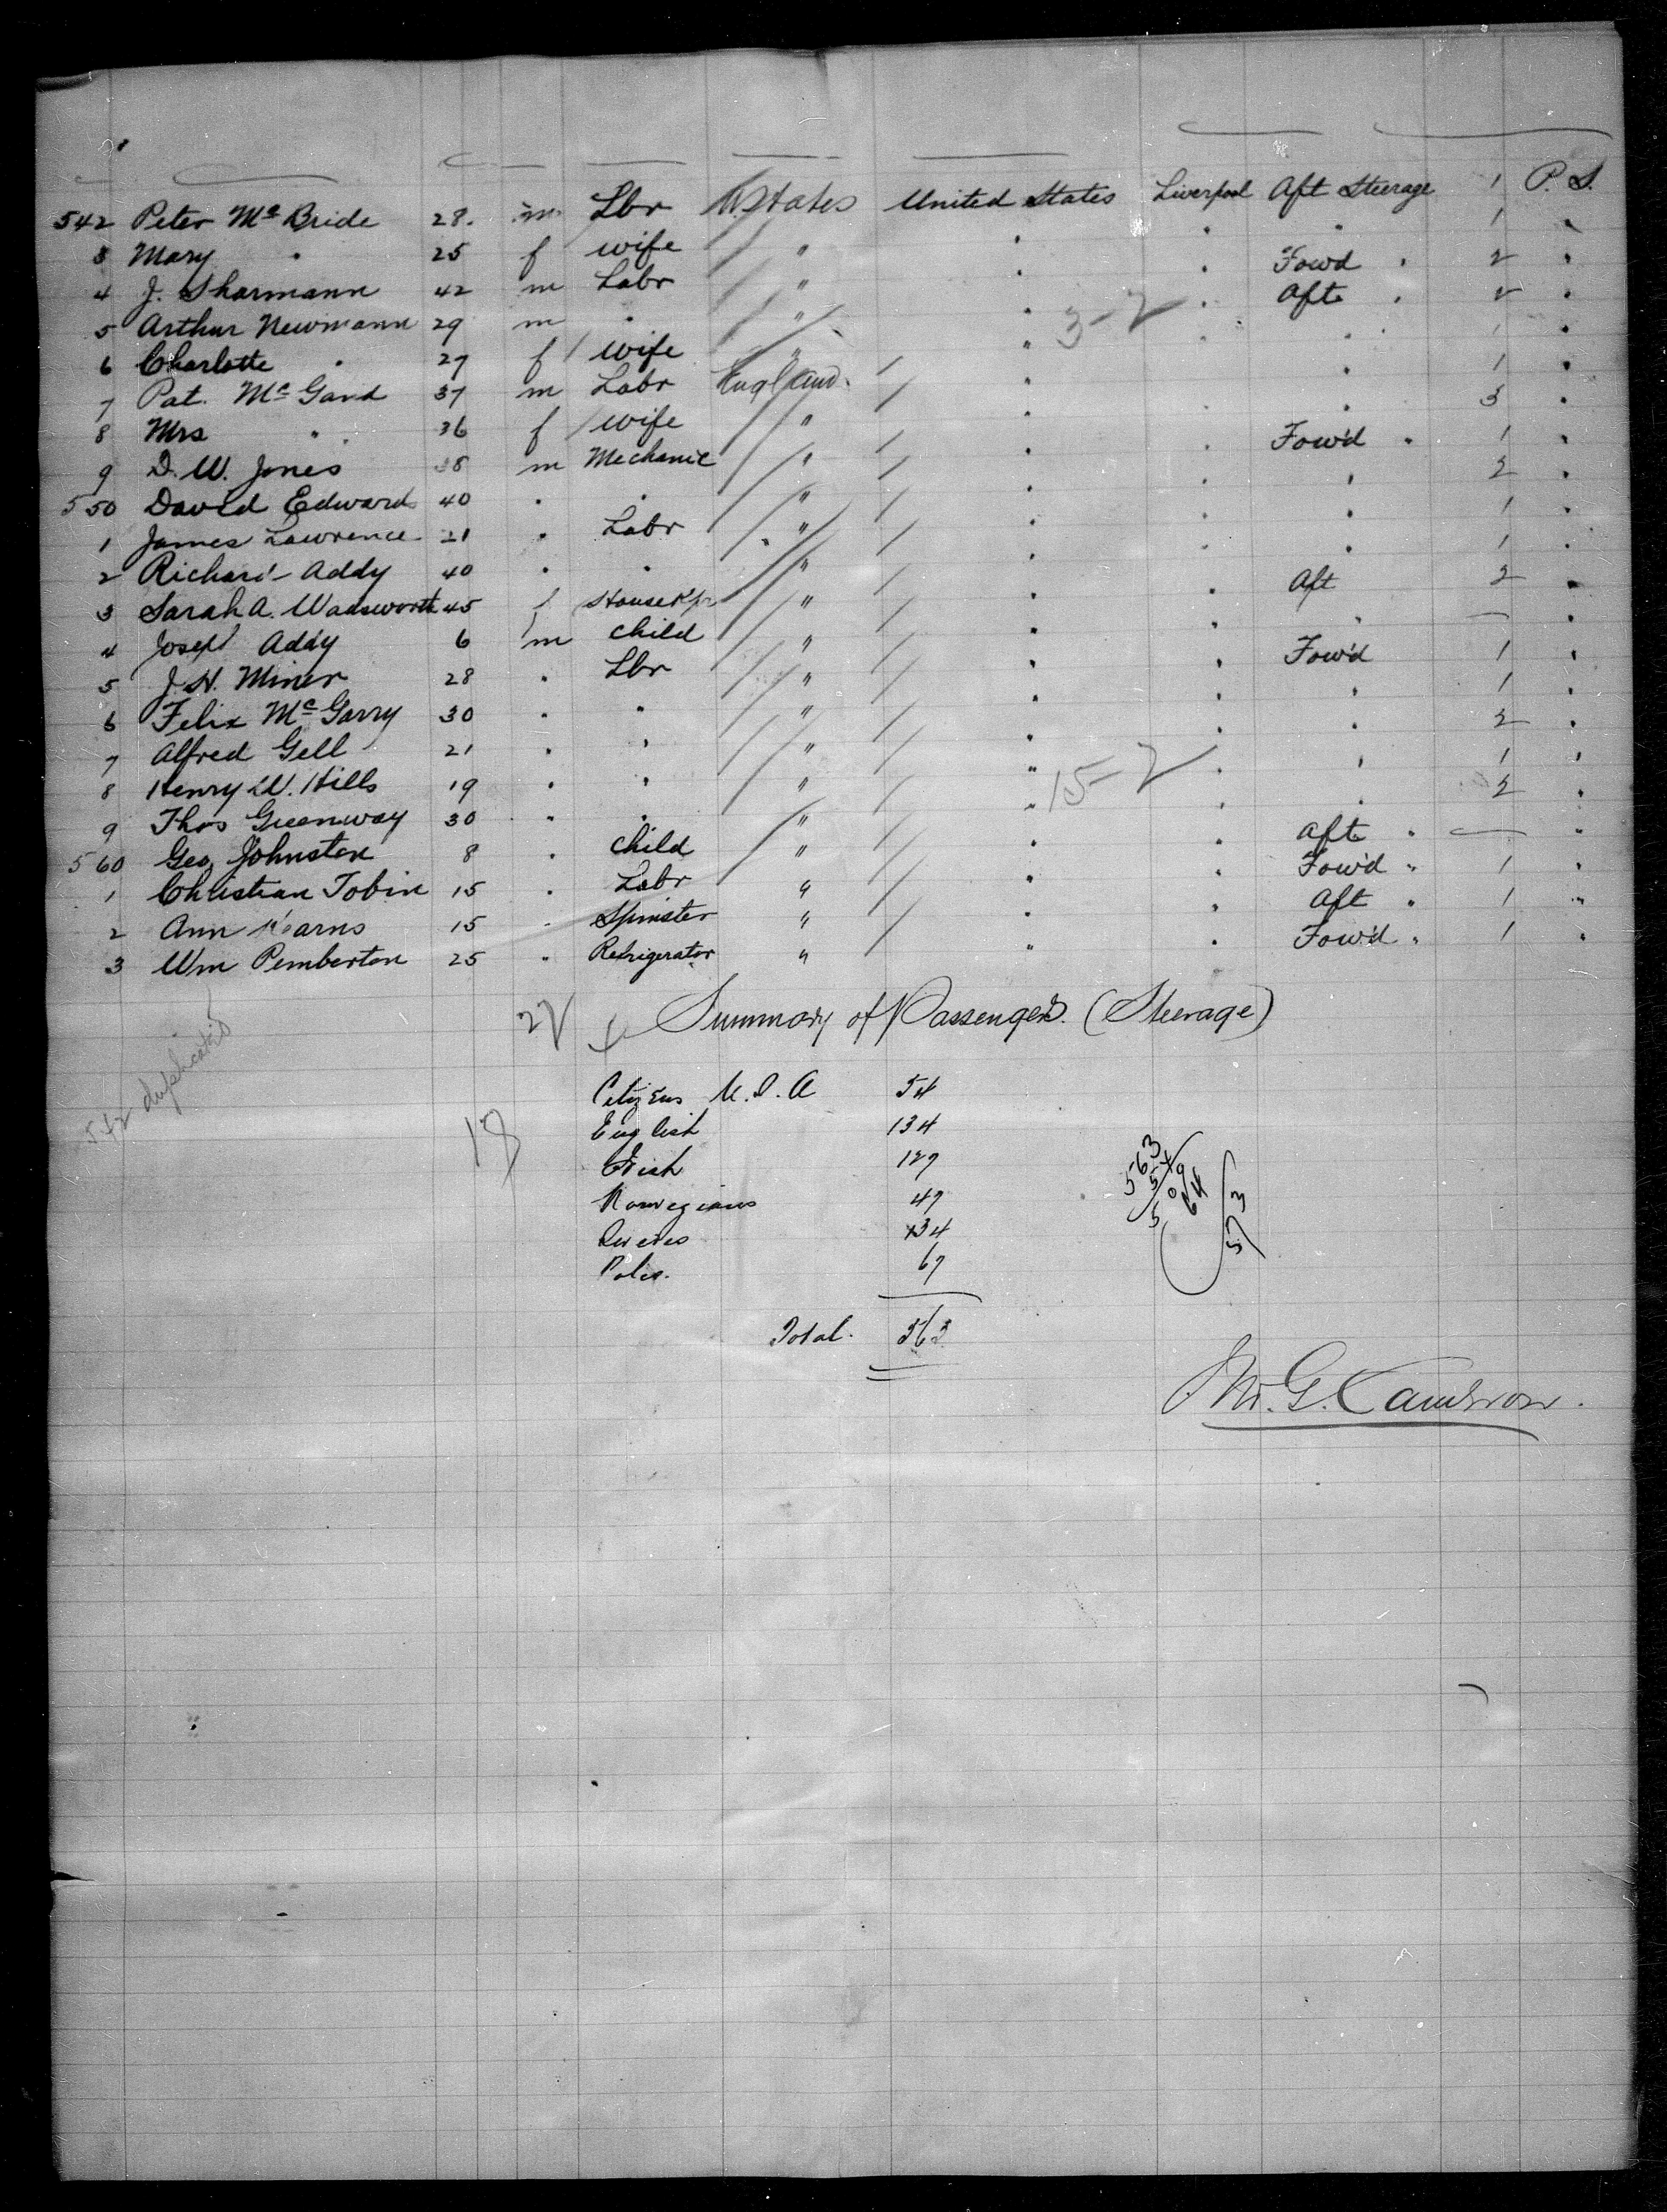 542 Peter Mc Bride 28. m Lbr U. States United States Liverpool Aft Steerage 1 P. S.
3 Mary " 25 f wife " " " " 1 "
4 J. Sharmann 42 m Labr " " " Fowd " 2 "
5 Arthur Newmann 29 m " " " " Aft " 2 "
6 Charlotte " 27 f wife " " " " "
7 Pat. Mc Gard 37 m Labr England. " " " 1 "
8 Mrs " 36 f wife " " " " 3 "
9 D. W. Jones 38 m Mechanic " " " Fow'd " 1 "
550 David Edwards 40 " " " " " " 2 "
1 James Lawrence 21 " Labr " " " " 1 "
2 Richard Addy 40 " " " " " " 1 "
3 Sarah A. Wadsworth 45 f HouseKpr " " " Aft 2 "
4 Joseph Addy 6 m child " " " " — "
5 J. H. Miner 28 " Lbr " " " Fow'd 1 "
6 Felix Mc Garry 30 " " " " " " 1 "
7 Alfred Gell 21 " " " " " " 2 "
8 Henry W. Hills 19 " " " " " " 1 "
9 Thos Greenway 30 " " " " " " 2 "
560 Geo Johnston 8 " child " " " Aft " — "
1 Christian Tobin 15 " Labr " " " Fow'd " 1 "
2 Ann Kearns 15 " Spinster " " " Aft " 1 "
3 Wm Pemberton 25 " Refrigerator " " " Fow'd " 1 "
3-2
15-2
22
Summary of Passengers. (Steerage)
542 duplicated
18
Citizens U. S. A 54
English 134
Irish 127
Norwegians 47
Swedes 134
Poles. 67
Total. 563
563
54
509
64
573
G. Cameron.